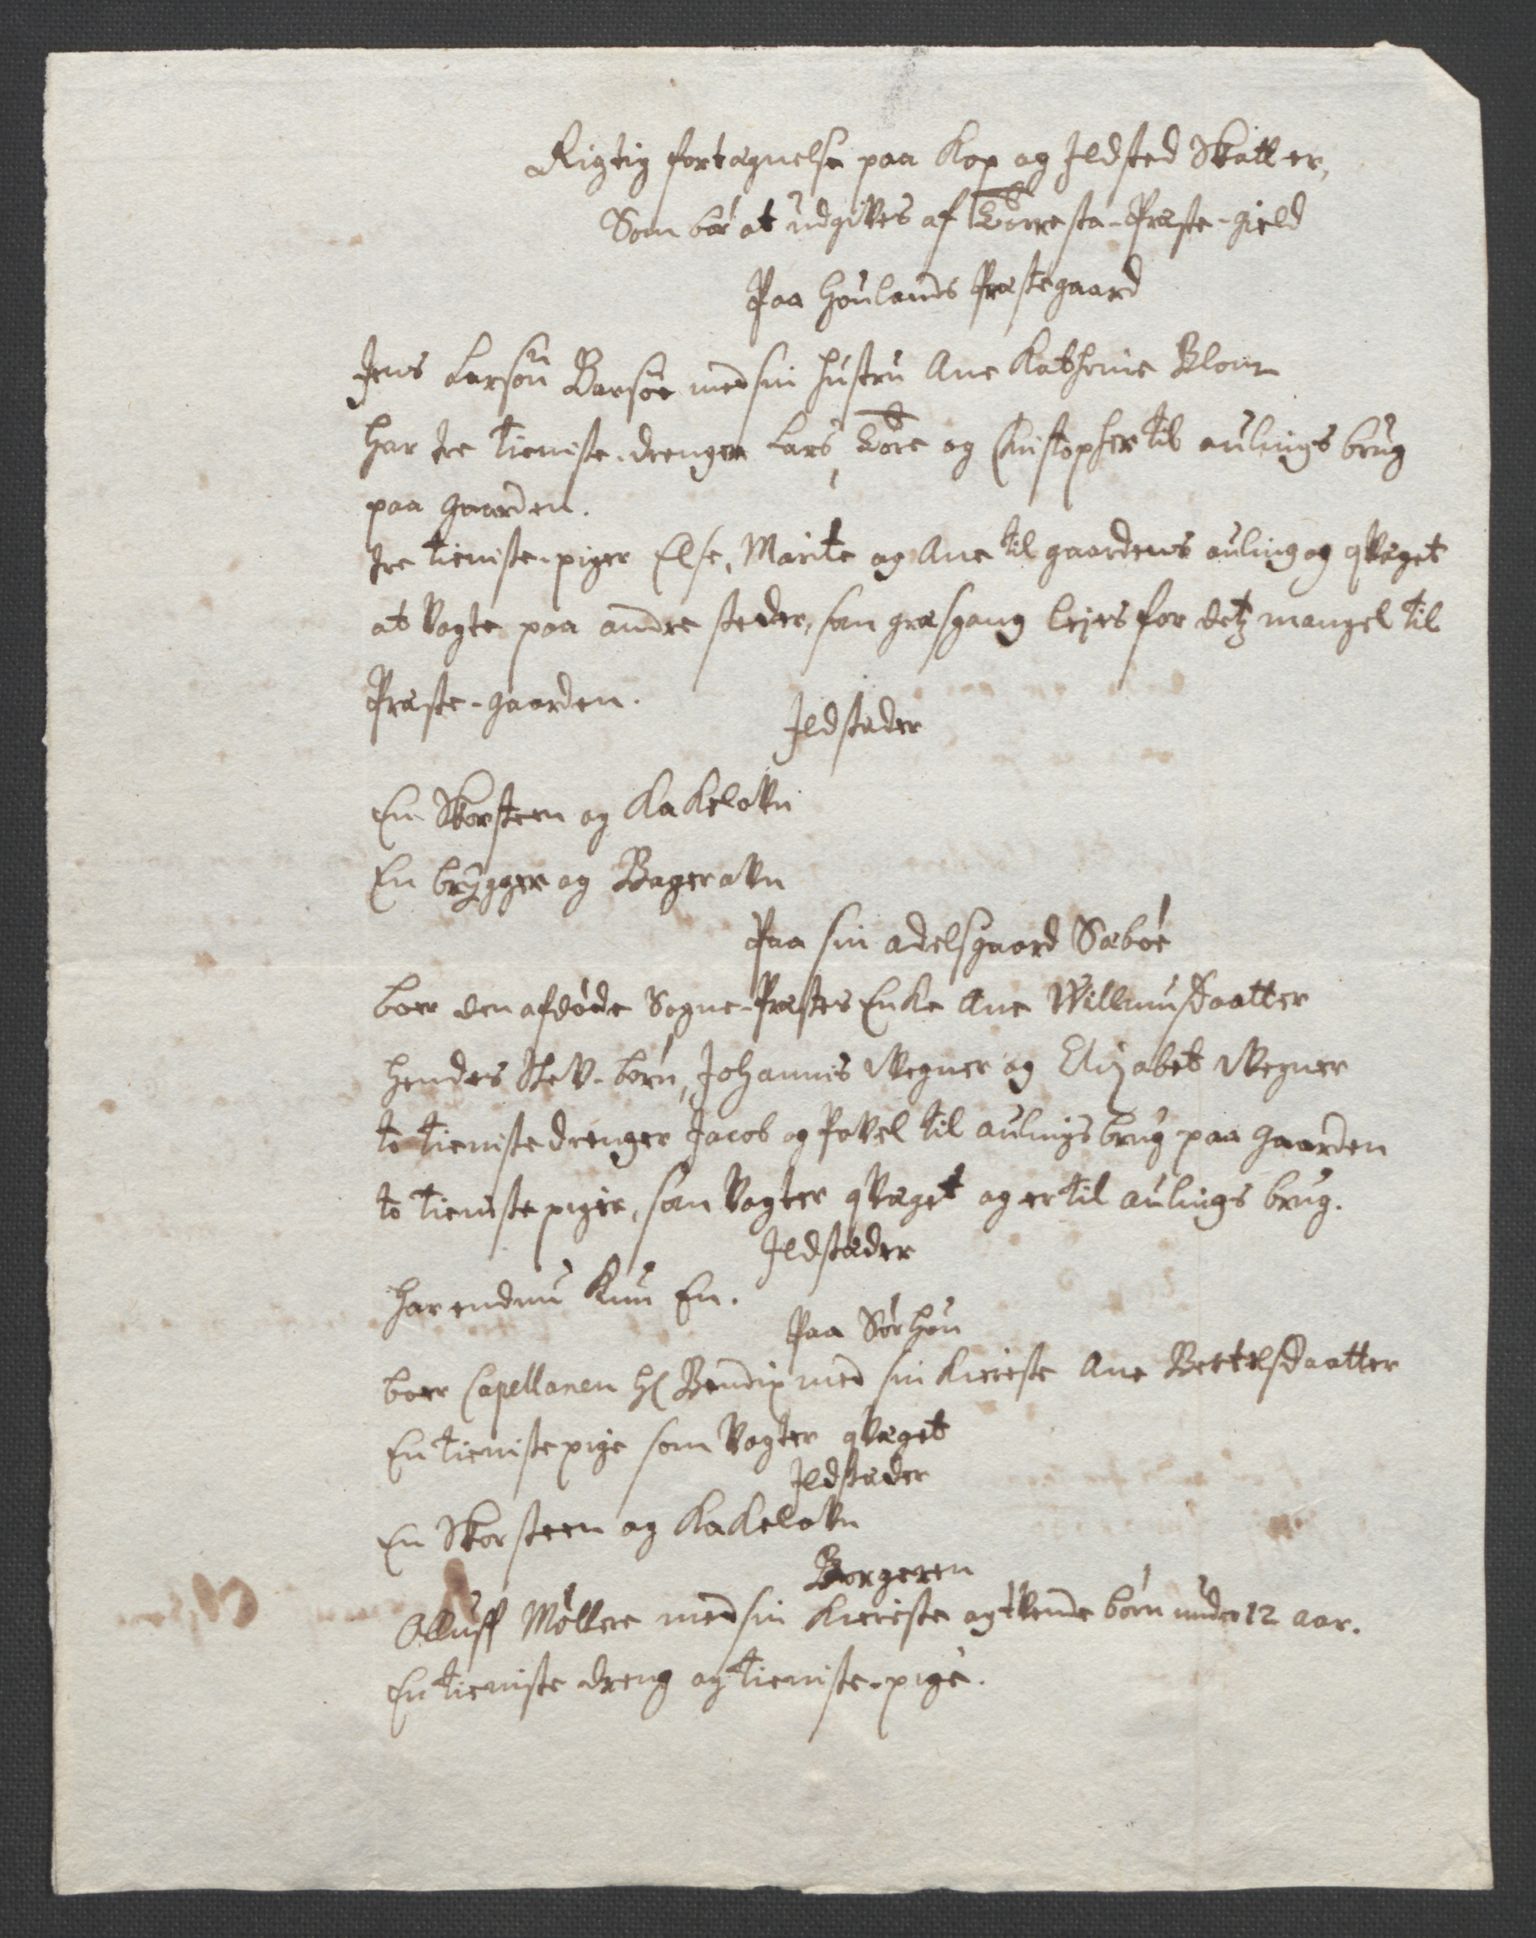 Rigtig fortegnelse paa Kop og Jldsted Skatter,
Som bør at udgives af Torresta-Præste-gield
Paa Houlands Præstegaard
Jens Larsøn Barsøe med sin hustru Ane Kathrine Blom
har tre tieniste-drenger Lars, Tore og Christopher til aulings brug
paa gaarden.
tre tieniste-piger Else, Marite og Ane til gaardens auling og qvæget
at Vogte paa andre steder, som græsgang lejes for detz mangel til
Præste-gaarden.
Jldstæder
En Skorsteen og Kakelovn
En brygger og Bagerovn
Paa sin adelsgaard Sæbøe
boer den afdøde Sogne-Præstes Enke Ane Willumsdaatter
hendes Stev-børn, Johannis Wegner og Elizabet Wegner
to tienistedrenger Jacob og Povel til aulings brug paa gaarden
to tienistepiger, som Vogter qvæget og er til aulings brug.
Jldstæder
har endnu Kun En.
Paa Sørhou
boer Capellanen Hr Bendix med sin Kiereste Ane Bertelsdaatter
En tienistepige som Vogter qvæget
Jldstæder
En Skorsteen og Kakelovn
Borgeren
Olluff Møllere med sin Kiereste og tvende børn under 12 aar.
En tieniste dreng og tieniste-pige.